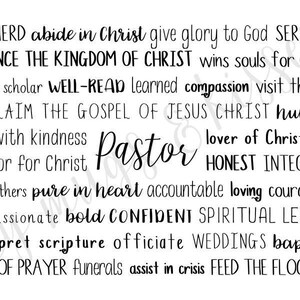 HERD abide in Christ give glory to God SER
NCE THE KINGDOM OF CHRIST wins souls for
scholar WELL-READ learned compassion visit th
LAIM THE GOSPEL OF JESUS CHRIST hu
with kindness Pastor lover of Christ
or for Christ HONEST INTEG
thers pure in heart accountable loving cour
ssionate bold CONFIDENT SPIRITUAL LE
pret scripture officiate WEDDINGS bap
OF PRAYER funerals assist in crisis FEED THE FLOC